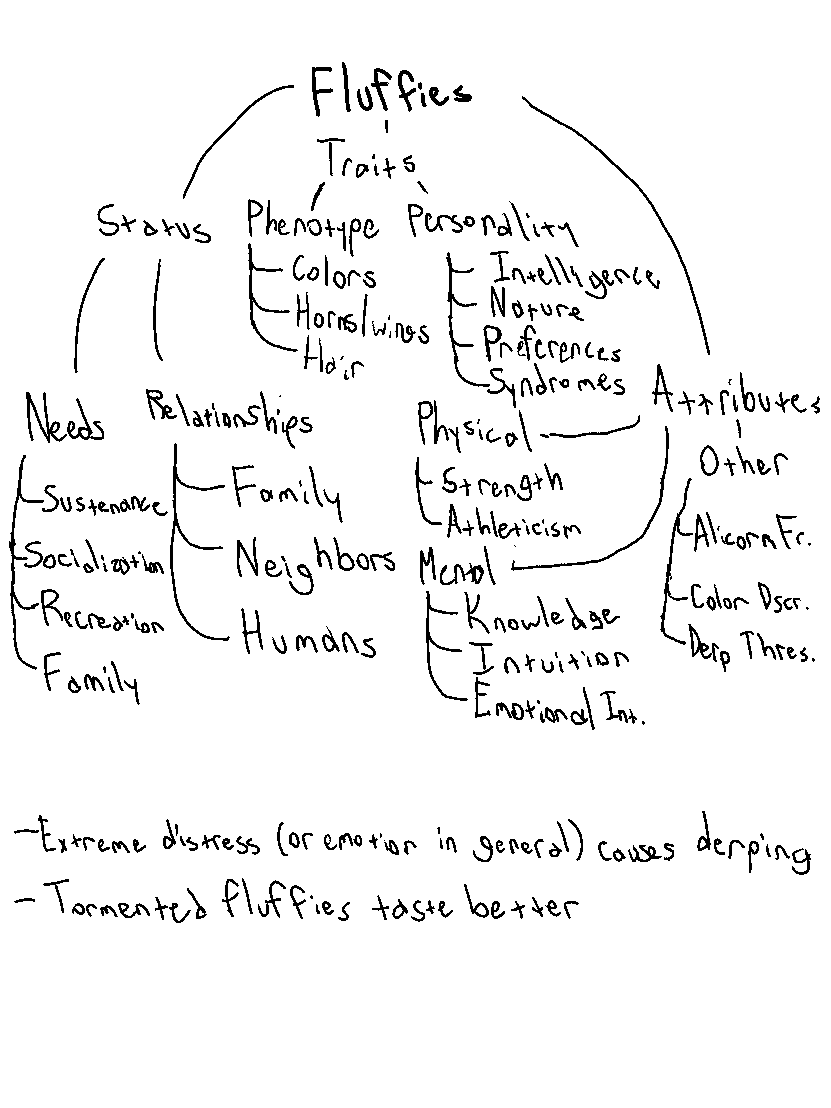 Fluffies
Traits
Status
Phenotype
Colors
Horns/wings
Hair
Personality
Intelligence
Nature
Preferences
Syndromes
Needs
Sustenance
Socialization
Recreation
Family
Relationships
Family
Neighbors
Humans
Attributes
Physical
Strength
Athleticism
Mental
Knowledge
Intuition
Emotional Int.
Other
Alicorn Fr.
Color Dscr.
Derp Thres.
-Extreme distress (or emotion in general) causes derping
- Tormented fluffies taste better